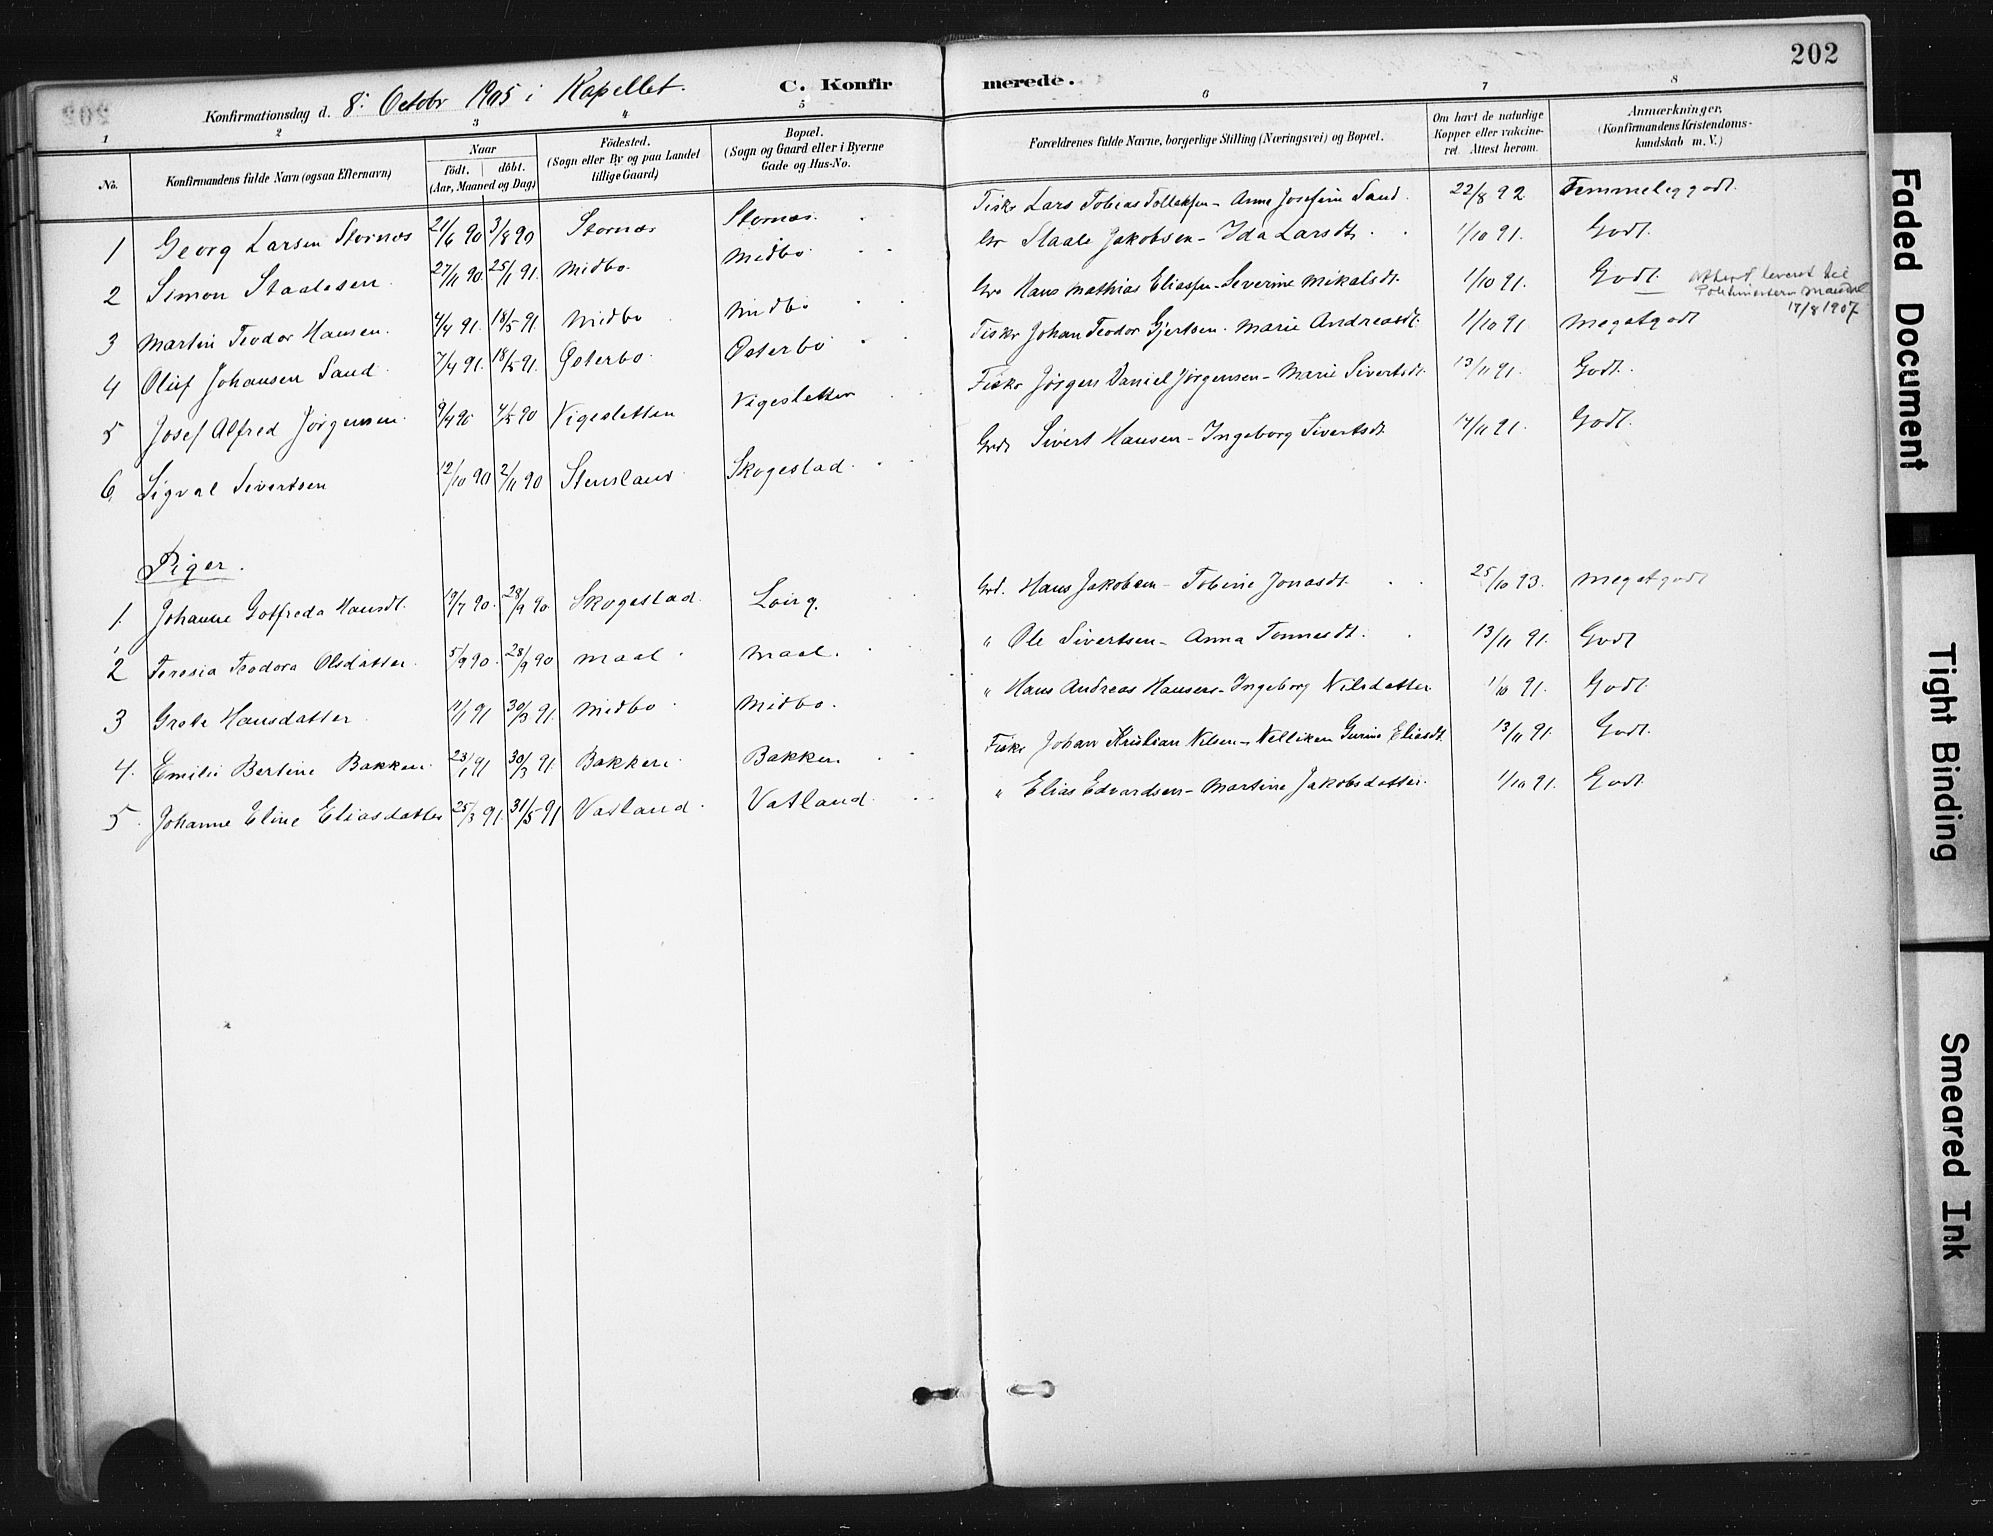 202
Konfirmationsdag d. 8. Octobr 1905 i Kapellet.
C. Konfirmerede.
1 2 3 4 5 6 7 8
No. Konfirmandens fulde Navn (ogsaa Efternavn) Naar født, døbt. (Aar, Maaned og Dag) Fødested. (Sogn eller By og paa Landet tillige Gaard) Bopæl. (Sogn og Gaard eller i Byerne Gade og Hus-No. Forældrenes fulde Navne, borgerlige Stilling (Næringsvei) og Bopæl. Om havt de naturlige Kopper eller vaccineret. Attest herom. Anmærkninger, (Konfirmandens Kristendomskundskab m. V.)
1 Georg Larsen Stornæs 21/6 90 3/8 90 Stornæs Stornæs. Fiskr Lars Tobias Tollaksen - Anne Josefine Sand. 22/8 92 Temmelig godt.
2 Simon Staalesen 27/11 90. 25/1 91. Midbo. Midbo Gr Staale Jakobsen - Ida Larsdt. 1/10 91. Godt.
3 Martin Teodor Hansen. 4/4 91. 18/5 91. Midbo Midbo Gr Hans Mathias Eliassen - Severine Mikalsdt. 1/10 91. Godt. Attest leveret til Politimesteren Mandal 17/8 1907
4 Oluf Johansen Sand. 7/4 91. 18/5 91. Østerbo. Østerbo Fiskr Johan Teodor Gjertsen - Marie Andreasdt. 1/10 91 Megetgodt
5 Josef Alfred Jørgensen. 9/4 90 4/5 90 Vigesletten Vigesletten Fiskr Jørgen Daniel Jørgensen - Marie Sivertsdt. 13/11 91. Godt.
6 Sigval Sivertsen 12/10 90 2/11 90 Stensland Skogestad. Grdr Sivert Hansen - Ingeborg Sivertsdt 14/11 91. Godt.
Piger.
1. Johanne Gotfreda Hansdt. 19/7 90. 28/9 90. Skogestad. Loirg. Grd. Hans Jakobsen - Tobine Jonasdt. 25/10 93. Megetgodt
2 Teresia Teodora Olsdatter. 5/9 90. 28/9 90 Maal Maal. " Ole Sivertsen - Anna Tonnesdt. 13/11 91. Godt
3 Grete Hansdatter. 11/1 91 30/3 91. Midbo Midbo. " Hans Andreas Hansen - Ingeborg Nilsdatter 1/10 91. Godt.
4. Emilie Bertine Bakken. 23/1 91 30/3 91. Bakken. Bakken Fiskr Johan Kristian Nilsen - Nelliken Gurine Eliasdt. 13/11 91. Godt.
5. Johanne Eline Eliasdatter 25/3 91. 31/5 91 Vatland. Vatland. " Elias Edvardsen - Martine Jakobsdatter. 1/10 91. Godt.
Faded Document
Tight Binding
Smeared Ink